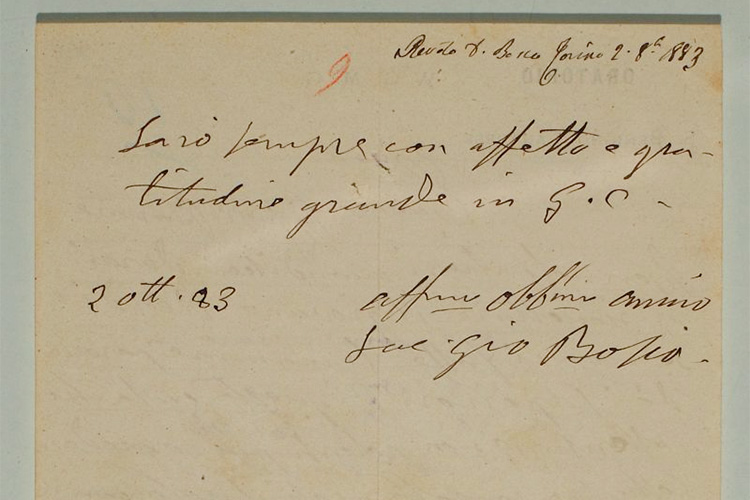 Revdo D. Bosco Torino 2. 8e 1883
9
Sarò sempre con affetto e gra-
titudine grande in G. C -
2 ott. 83
affmo obbmo amico
Sac. Gio Bosco.